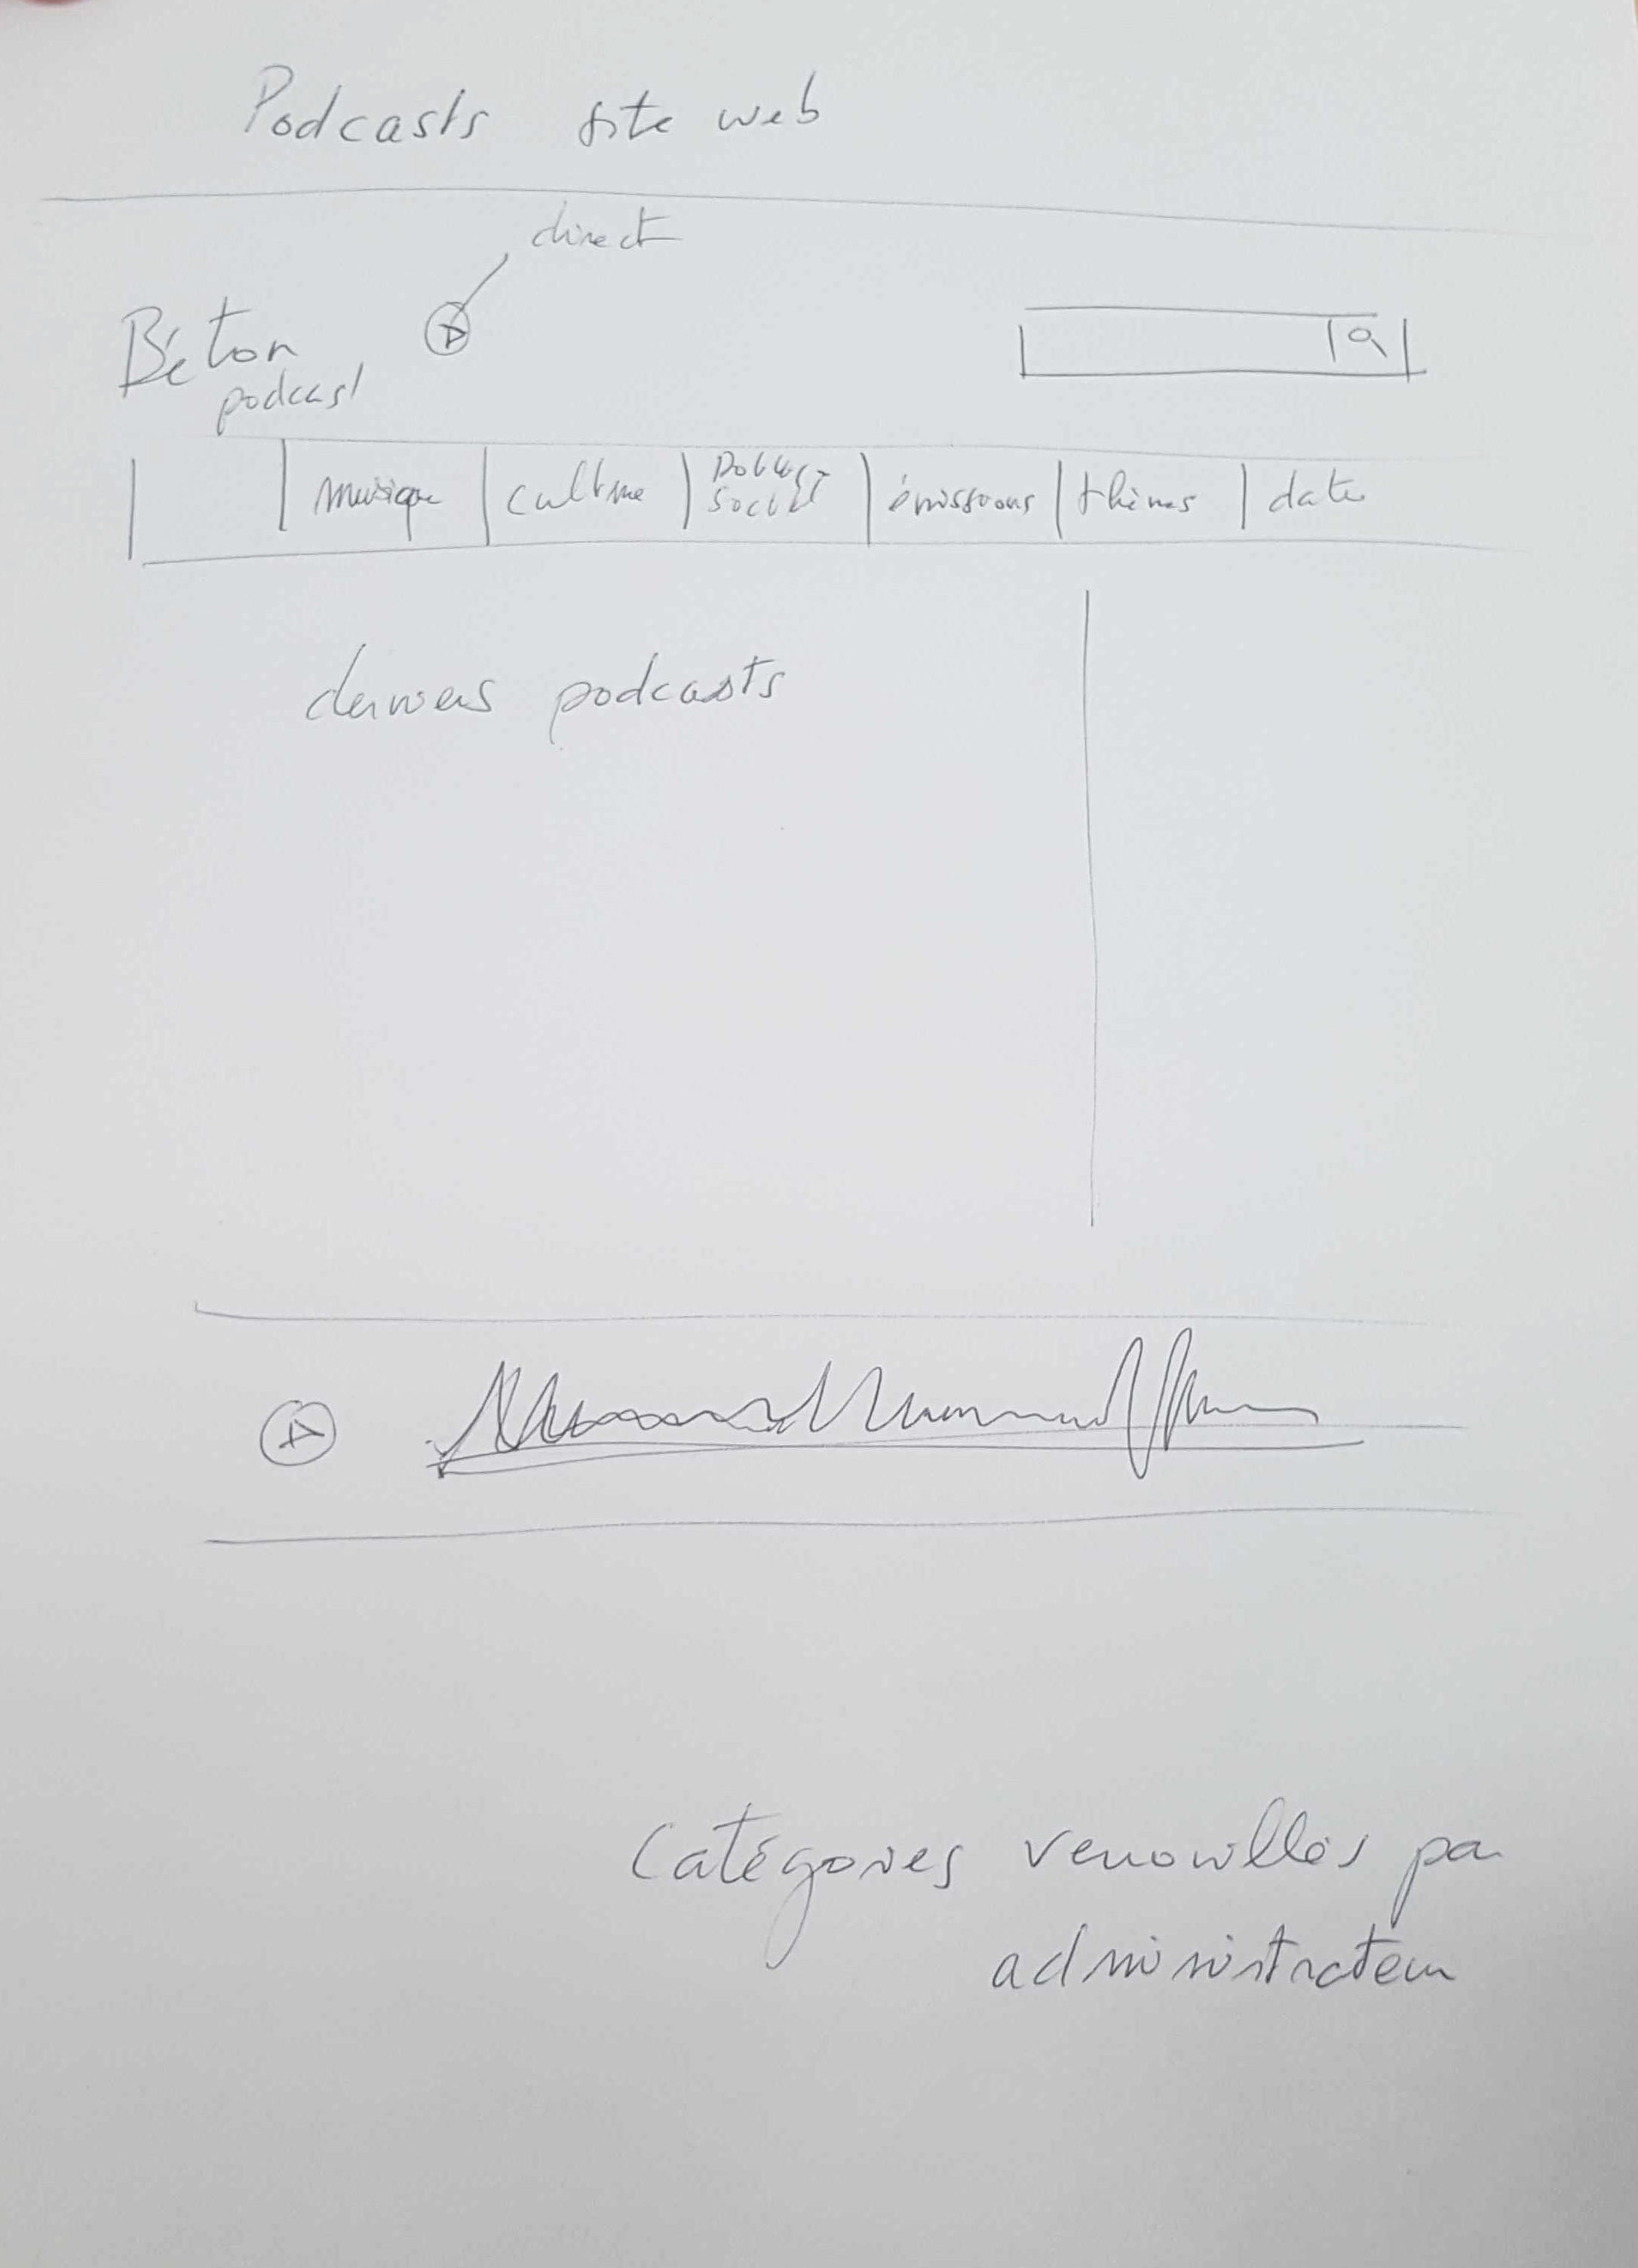 Podcasts site web
direct
Béton
podcast
musique culture social émissions thèmes date
derniers podcasts
Catégories verrouillés par
administrateur